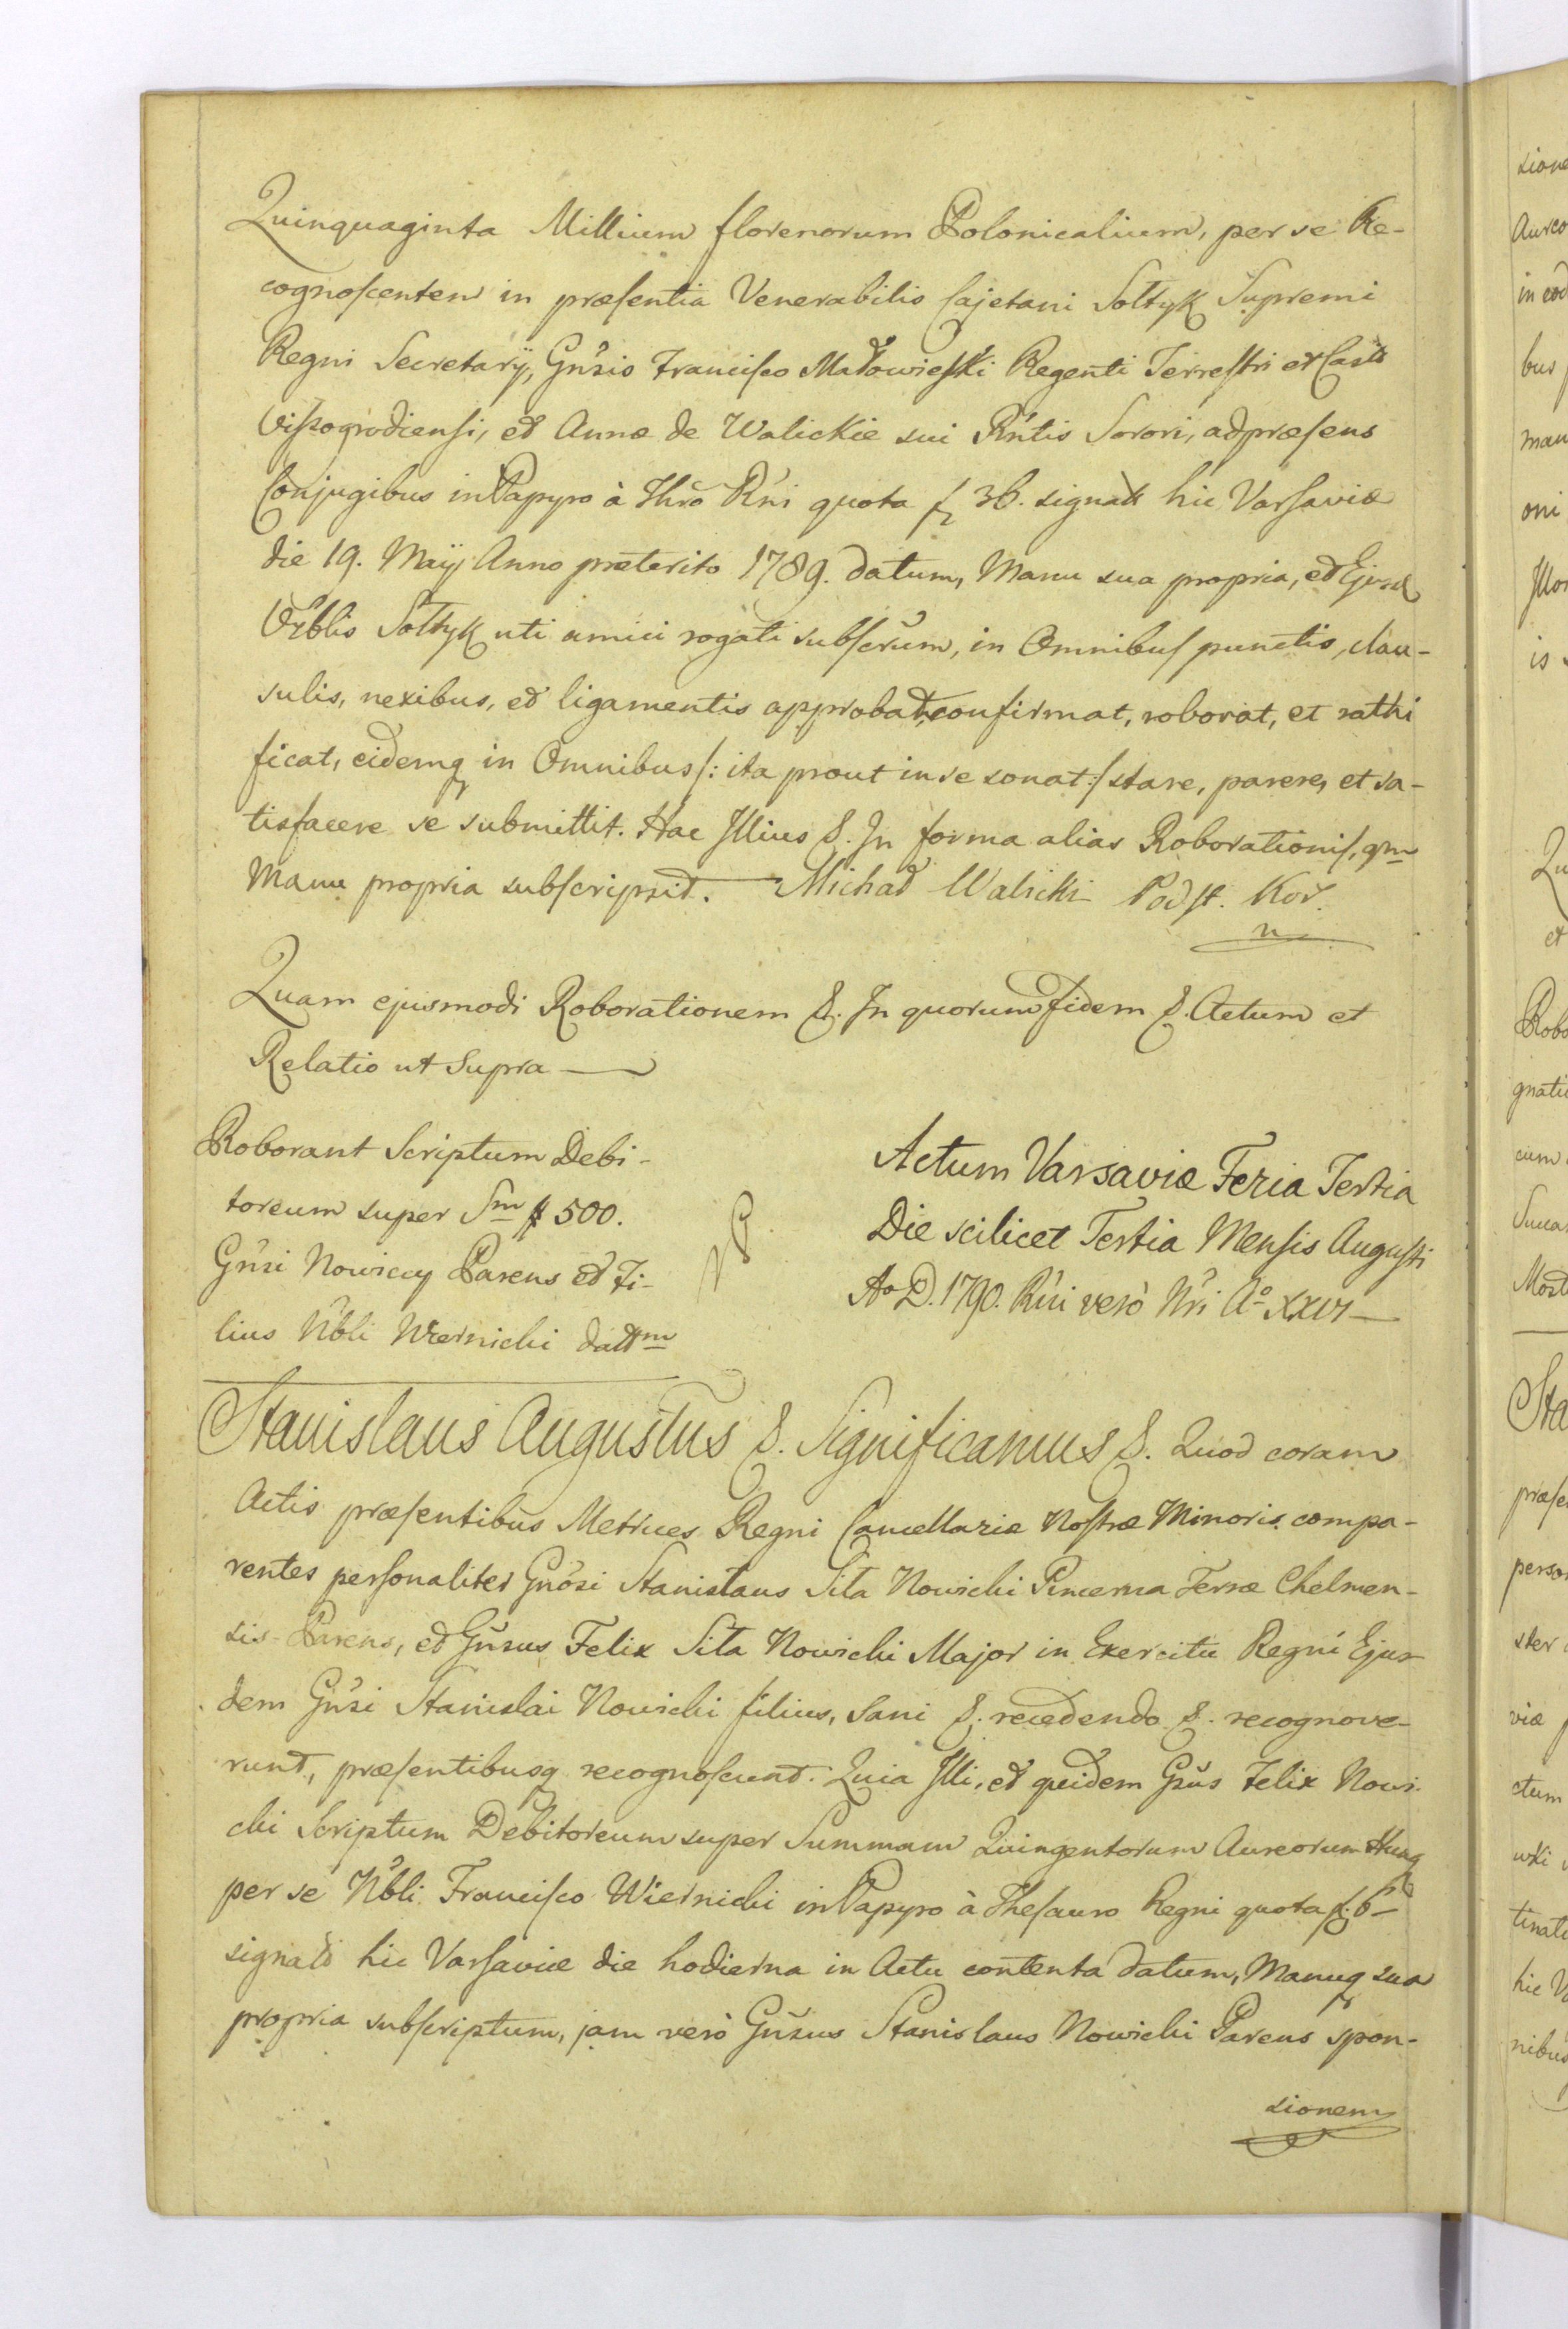 Quinquaginta Millium florenorum Polonicalium, per se Re-
cognoscentem in præsentia Venerabilis Cajetani Sołtyk Supremi
Regni Secretarij, Gnsis Francisco Małowieski Regenti Terrestri et Castr
Viszogrodiensi, et Annæ de Walickie sui Rntis Sorori, ad præsens
Conjugibus in Papyro à Thro Rni quota f 36. signat hic Varsaviæ
die 19. Maij Anno præterito 1789. datum, Manu sua propria, et Ejusd
Vrblis Sołtyk uti amici rogati subscrum, in Omnibus punctis, clau-
sulis, nexibus, et ligamentis approbat, confirmat, roborat, et rathi
ficat, eidemq in Omnibus /: ita prout in se sonat :/ stare, parere, et sa-
tisfacere se submittit. Hac Illius &. In forma alias Roborationis, qm
Manu propria subscripsit. — Michał Walicki Podst. Kor.
Quam ejusmodi Roborationem &. In quorum fidem &. Actum et
Relatio ut Supra —
Roborant Scriptum Debi-
toreum super Sm # 500.
Gnsi Nowiccy Parens et Fi-
lius Nbli Wiernicki datm
Actum Varsaviæ Feria Tertia
Die scilicet Tertia Mensis Augusti
Ao D. 1790. Rni verò Nri Ao XXVI —
Stanislaus Augustus &. Significamus &. Quod coram
Actis præsentibus Metrices Regni Cancellariæ Nostræ Minoris compa-
rentes personaliter Gnosi Stanislaus Siła Nowicki Pincerna Terræ Chelmen-
sis Parens, et Gnsus Felix Siła Nowicki Major in Exercitu Regni Ejus-
dem Gnsi Stanislai Nowicki filius, Sani &. recedendo &. recognove-
runt, præsentibusq recognoscunt. Quia Illi, et quidem Gsus Felix Nowi-
cki Scriptum Debitoreum super Summam Quingentorum Aureorum Hung
per se Nbli Francisco Wiernicki in Papyro à Thesauro Regni quota f. 6
signati hic Varsaviæ die hodierna in Actu contenta datum, Manuq sua
propria subscriptum, jam verò Gnsus Stanislaus Nowicki Parens spon-
sionem